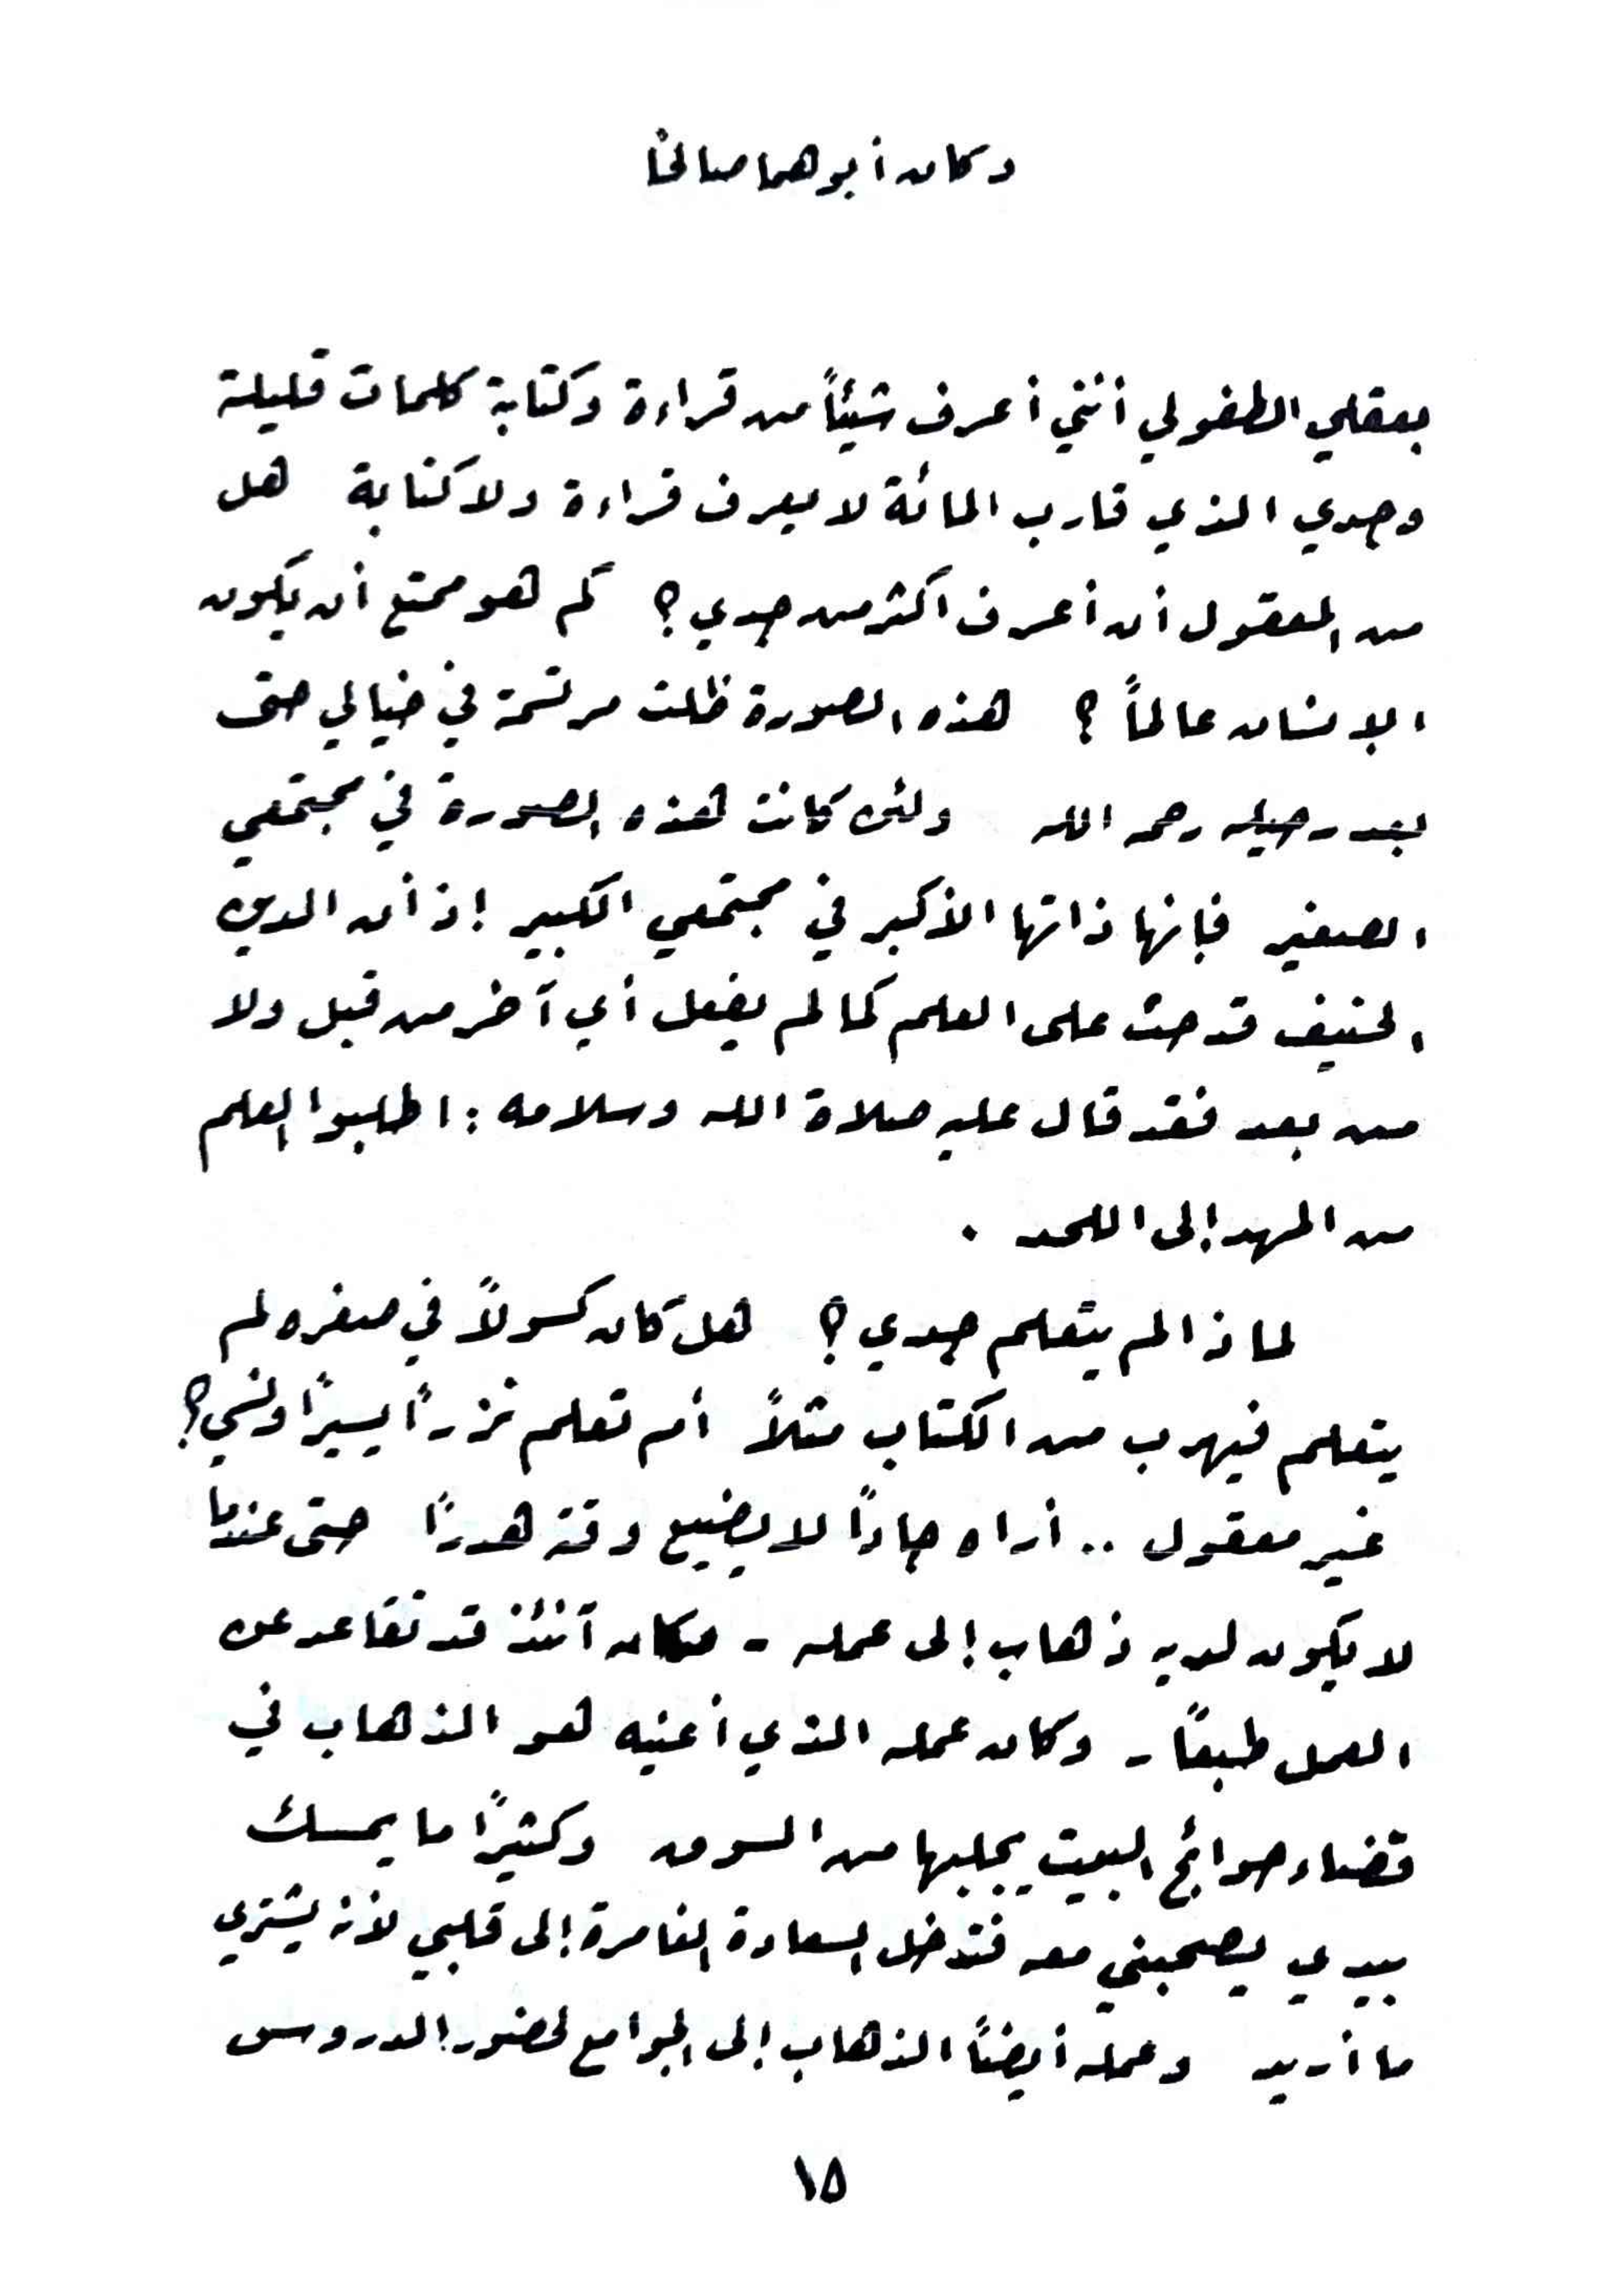 وكان أبوهما صالحًا
بعقلي الطفولي أنني أعرف شيئاً من قراءة وكتابة كلمات قليلة
وجدي الذي قارب المائة لا يعرف قراءة ولا كتابة هل
من المعقول أن أعرف أكثر من جدي؟ كم هو ممتع أن يكون
الإنسان عالماً؟ هذه الصورة ظلت مرتسمة في خيالي حتى
بعد رحيله رحمه الله ولئن كانت هذه الصورة في مجتمعي
الصغير فإنها ذاتها الأكبر في مجتمعي الكبير إذ أن الدين
الحنيف قد حث على العلم كما لم يفعل أي آخر من قبل ولا
من بعد فقد قال عليه صلاة الله وسلامه: اطلبوا العلم
من المهد إلى اللحد .
لماذا لم يتعلم جدي؟ هل كان كسولاً في صغره لم
يتعلم فيهرب من الكتاب مثلاً أم تعلم نزراً يسيرًا ونسي؟
غير معقول .. أراه جادًا لا يضيع وقته هدرًا حتى عندما
لا يكون لديه ذهاب إلى عمله - فكان آنئذ قد تقاعد عن
العمل طبعًا - وكان عمله الذي أعنيه هو الذهاب في
قضاء حوائج البيت يجلبها من السوق وكثيرًا ما يمسك
بيدي يصحبني معه فتدخل السعادة الغامرة إلى قلبي لأنه يشتري
ما أريد وعمله أيضًا الذهاب إلى الجوامع لحضور الدروس
١٥